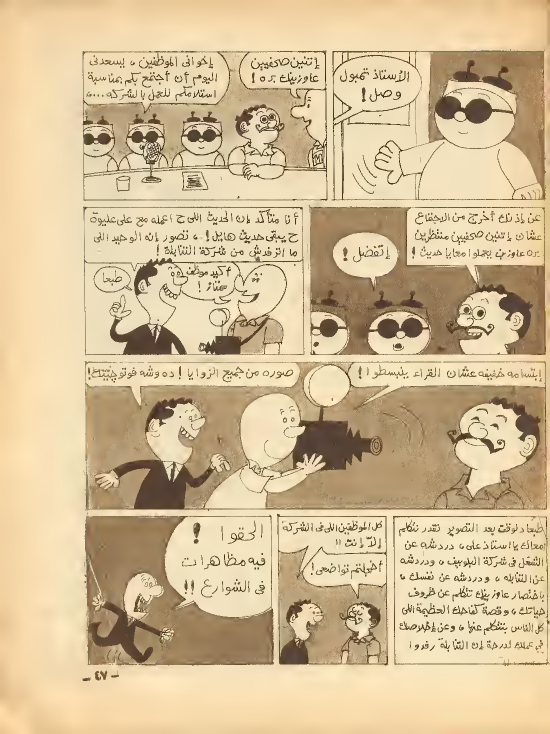 الأستاذ تمبول
وصل !
إتنين صحفيين
عاوزينك بره !
إخوانى الموظفين ، يسعدنى
اليوم أن أجتمع بكم بمناسبة
استلامكم للعمل بالشركه ....،
عن إذنك أخرج من الاجتماع
عشان إتنين صحفيين منتظرين
بره عاوزين يعملوا معايا حديث !
إتفضل !
أنا متأكد إن الحديث اللى ح اعمله مع على عليوة
ح يبقى حديث هايل ! ، تصور إنه الوحيد اللى
ما اترفدش من شركة التنابلة !
أكيد موظف
ممتاز !
طبعا
إبتسامه خفيفه عشان القراء ينبسطوا !
صوره من جميع الزوايا ! ده وشه فوتوچينيك !
طبعا دلوقت بعد التصوير نقدر نتكلم
معاك يا استاذ على ، دردشه عن
الشغل فى شركة البلوبيف ، ودردشه
عن التنابله ، ودردشه عن نفسك ،
باختصار عاوزينك تتكلم عن ظروف
حياتك ، وقصة كفاحك العظيمة اللى
كل الناس بتتكلم عنها ، وعن إخلاصك
فى عملك لدرجة إن التنابلة رفدوا
كل الموظفين اللى فى الشركة
إلا إنت !!
أخجلتم تواضعى !
الحقوا !
فيه مظاهرات
فى الشوارع !!
- ٤٧ -